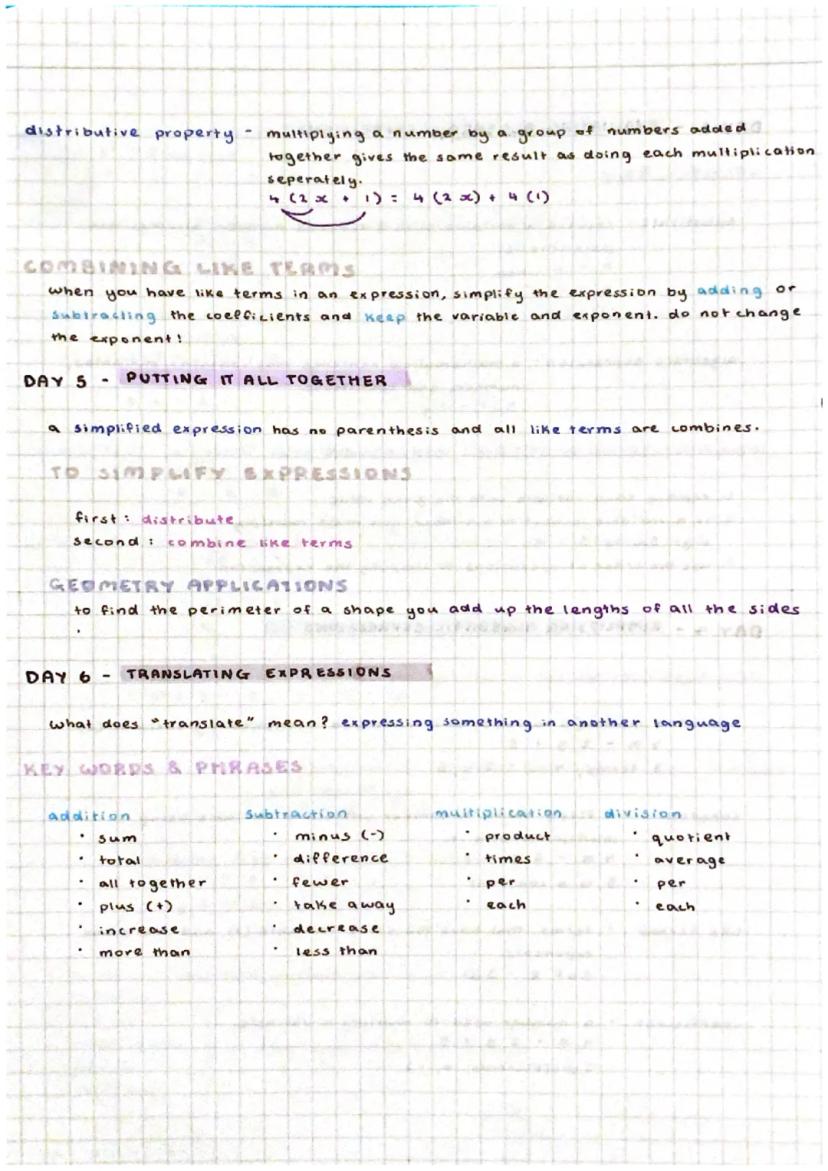 distributive property - multiplying a number by a group of numbers added
together gives the same result as doing each multiplication
seperately.
4 (2x + 1) = 4 (2x) + 4 (1)
COMBINING LIKE TERMS
when you have like terms in an expression, simplify the expression by adding or
subtracting the coefficients and keep the variable and exponent. do not change
the exponent!
DAY 5 - PUTTING IT ALL TOGETHER
a simplified expression has no parenthesis and all like terms are combines.
TO SIMPLIFY EXPRESSIONS
first : distribute
second : combine like terms
GEOMETRY APPLICATIONS
to find the perimeter of a shape you add up the lengths of all the sides
.
DAY 6 - TRANSLATING EXPRESSIONS
what does "translate" mean? expressing something in another language
KEY WORDS & PHRASES
addition subtraction multiplication division
· sum · minus (-) · product · quotient
· total · difference · times · average
· all together · fewer · per · per
· plus (+) · take away · each · each
· increase · decrease
· more than · less than